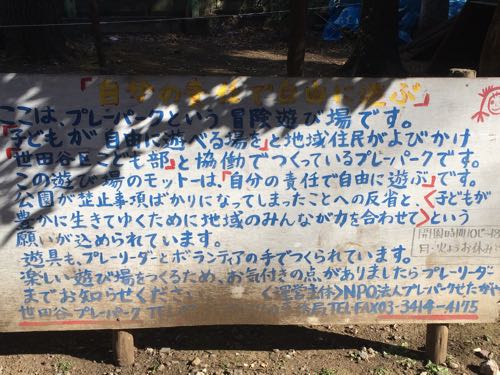 「自分の責任で自由に遊ぶ」
ここは、プレーパークという冒険遊び場です。
「子どもが自由に遊べる場を」と地域住民がよびかけ
「世田谷区こども部」と協働でつくっているプレーパークです。
この遊び場のモットーは、「自分の責任で自由に遊ぶ」です。
公園が禁止事項ばかりになってしまったことへの反省と、<子どもが
豊かに生きてゆくために地域のみんなが力を合わせて>という
願いが込められています。
開園時間10じ-
日・火ようお休み
遊具も、プレーリーダーとボランティアの手でつくられています。
楽しい遊び場をつくるため、お気付きの点がありましたらプレーリーダー
までお知らせくだ
<運営主体>NPO法人プレーパークせたがや
世田谷プレーパーク TEL
局TEL・FAX03-3414-4175